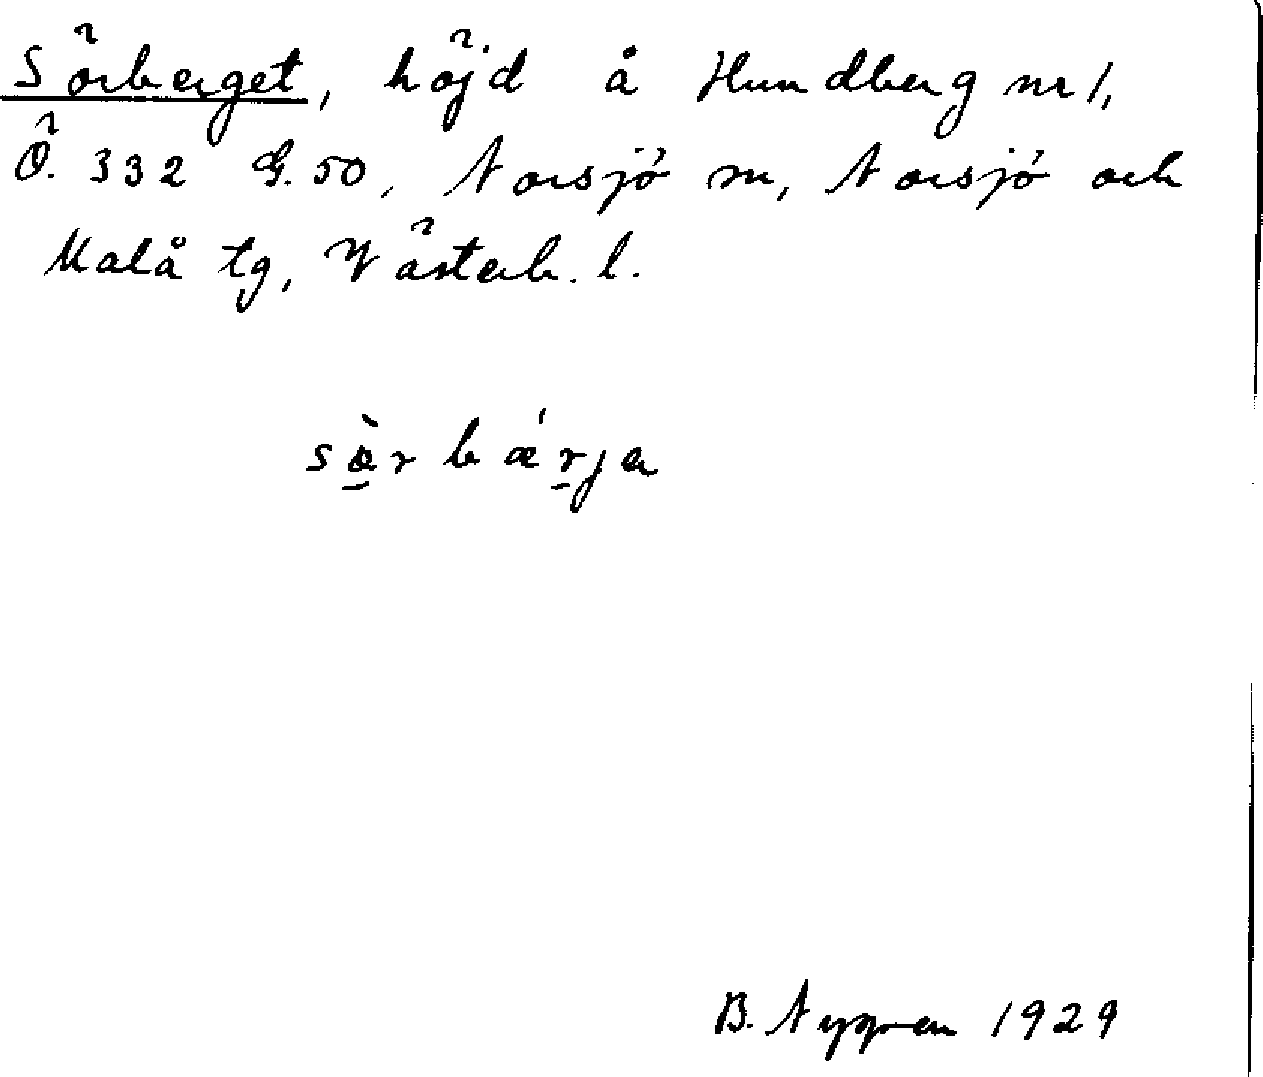 Sörberget, höjd å Hundberg nr 1,
Ö. 332 G. 50, Norsjö sn, Norsjö och
Malå tg, Västerb. l.
sὰ̱r bǽṟja
B. Nygren 1929